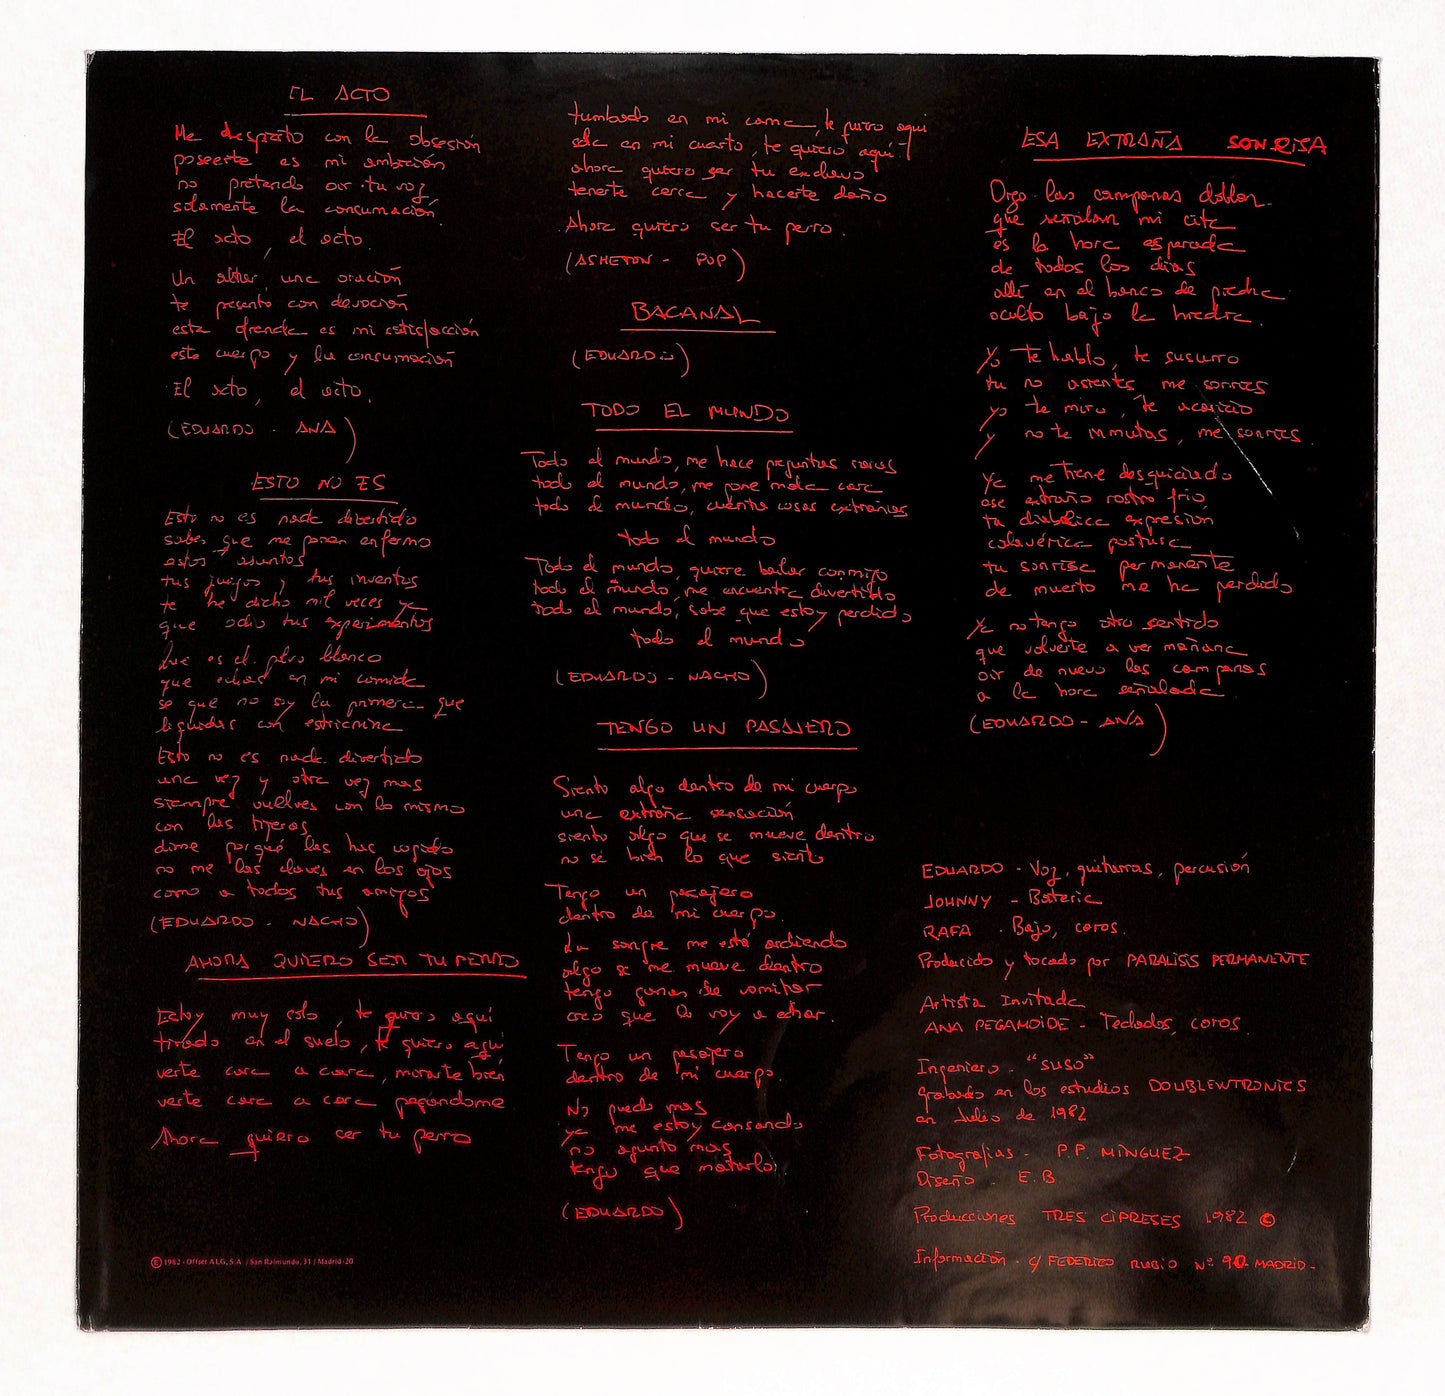 EL ACTO
Me despierto con la obsesión
poseerte es mi ambición
no pretendo oir tu voz
solamente la consumación
El acto, el acto.
Un altar, una oración
te presento con devoción
esta ofrenda es mi satisfacción
este cuerpo y la consumación
El acto, el acto.
(EDUARDO - ANA)
ESTO NO ES
Esto no es nada divertido
sabes que me ponen enfermo
estos asuntos
tus juegos y tus inventos
te he dicho mil veces ya
que odio tus experimentos
Que es el polvo blanco
que echas en mi comida
se que no soy la primera que
liquidas con estricnina
Esto no es nada divertido
una vez y otra vez mas
siempre vuelves con lo mismo
con las tijeras
dime porqué las has cogido
no me las claves en los ojos
como a todos tus amigos
(EDUARDO - NACHO)
AHORA QUIERO SER TU PERRO
Estoy muy solo, te quiero aqui
tirado en el suelo, te quiero aqui
verte cara a cara, mirarte bien
verte cara a cara pegándome
Ahora quiero ser tu perro
tumbado en mi cama, te quiero aqui
sola en mi cuarto, te quiero aquí
ahora quiero ser tu esclavo
tenerte cerca y hacerte daño
Ahora quiero ser tu perro.
(ASHETON - POP)
BACANAL
(EDUARDO)
TODO EL MUNDO
Todo el mundo, me hace preguntas raras
todo el mundo, me pone mala cara
todo el mundo, cuenta cosas extrañas
todo el mundo
Todo el mundo, quiere bailar conmigo
todo el mundo, me encuentra divertido
todo el mundo, sabe que estoy perdido
todo el mundo
(EDUARDO - NACHO)
TENGO UN PASAJERO
Siento algo dentro de mi cuerpo
una extraña sensación
siento algo que se mueve dentro
no sé bien lo que siento
Tengo un pasajero
dentro de mi cuerpo.
La sangre me está ardiendo
algo se me mueve dentro
tengo ganas de vomitar
creo que lo voy a echar.
Tengo un pasajero
dentro de mi cuerpo.
No puedo mas
ya me estoy cansando
no aguanto mas
tengo que matarlo
(EDUARDO)
ESA EXTRAÑA SONRISA
Oigo las campanas doblar
que señalan mi cita
es la hora esperada
de todos los dias
allí en el banco de piedra
oculto bajo la hiedra.
Yo te hablo, te susurro
tu no asientes, me sonries
yo te miro, te acaricio
y no te inmutas, me sonries.
Ya me tiene desquiciado
ese extraño rostro frio
tu diabólica expresión
calavérica postura
tu sonrisa permanente
de muerto me ha perdido
Ya no tengo otro sentido
que volverte a ver mañana
oir de nuevo las campanas
a la hora señalada
(EDUARDO - ANA)
EDUARDO - Voz, guitarras, percusión
JOHNNY - Bateria
RAFA - Bajo, coros.
Producido y tocado por PARALISIS PERMANENTE
Artista Invitada
ANA PEGAMOIDE - Teclados, coros.
Ingeniero - "SUSO"
grabado en los estudios DOUBLEWTRONICS
en Julio de 1982
Fotografias - P.P. MINGUEZ
Diseño - E.B
Producciones TRES CIPRESES 1982 ©
Información - c/ FEDERICO RUBIO Nº 90 MADRID -
© 1982 - Offset ALG, S.A. / San Raimundo, 31 / Madrid-20